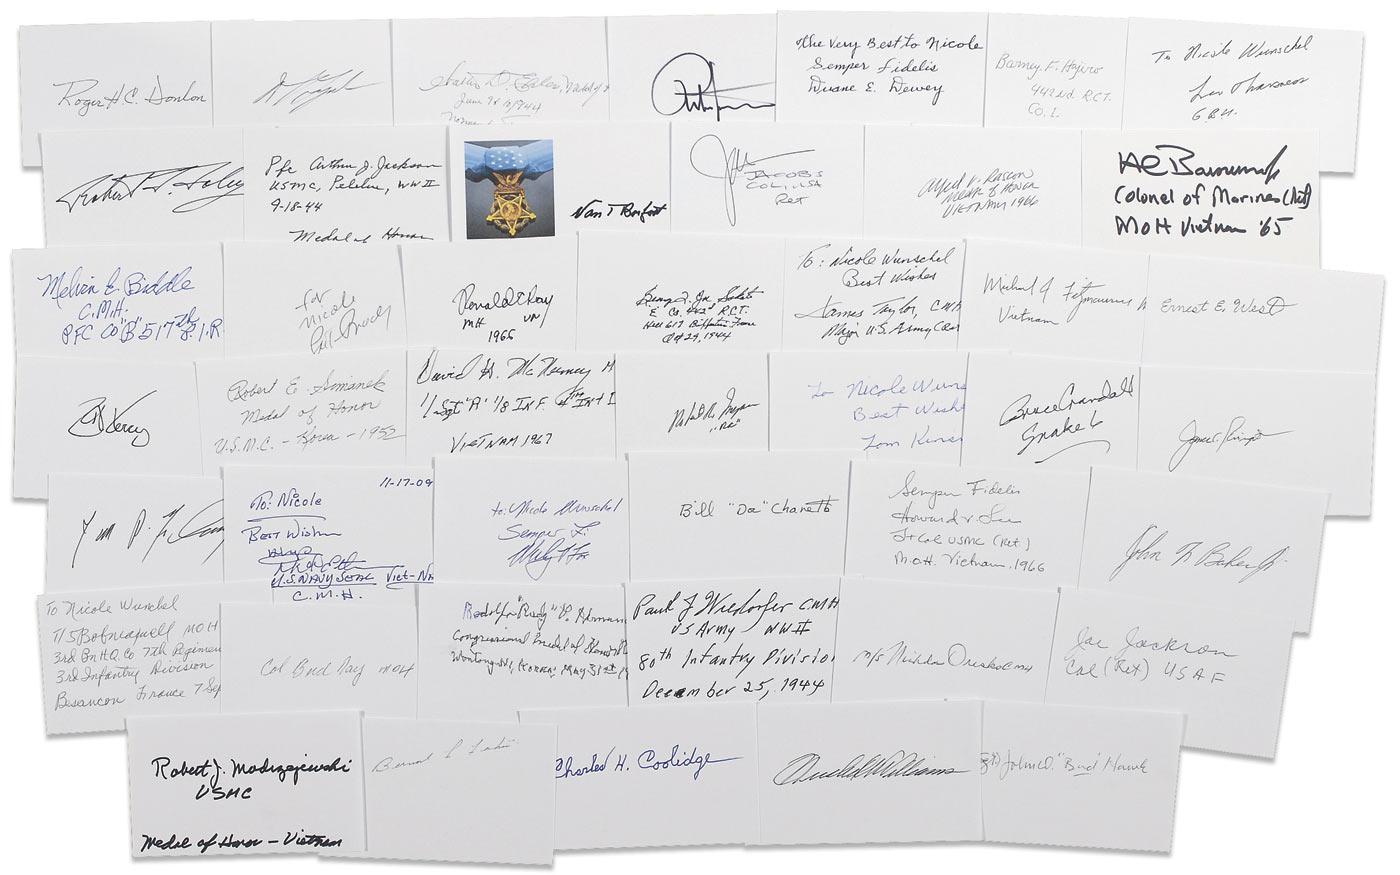 Roger H.C. Donlon
June 9th 1944
The Very Best to Nicole
Semper Fidelis
Duane E. Dewey
Barney F. Hajiro
442nd R.C.T.
Co. I.
To Nicole Wunschel
Leo Thorsness
G.B.U.
Robert F. Foley
Pfc Arthur J. Jackson
USMC, Peleliu, WWII
9-18-44
Medal of Honor
Van T Barfoot
JACOBS
COL, USA
Ret
Alfred V. Rascon
Medal of Honor
VIETNAM 1966
HC Barnum Jr
Colonel of Marines (Ret)
MOH Vietnam '65
Melvin E. Biddle
C.M.H.
PFC Co "B" 517th P.I.R.
For
Nicole
Pat Brady
Ronald E Ray
MH VN
1966
George T. Joe Sakato
E Co. 442nd R.C.T.
Hill 617 Biffontaine France
Oct 29, 1944
To: Nicole Wunschel
Best Wishes
James Taylor, CMH
Major U.S. Army Cav
Michael J Fitzmaurice
Vietnam
Ernest E. West
Bob Kerrey
Robert E. Simanek
Medal of Honor
U.S.M.C. - Korea - 1952
David H. McNerney
1/Sgt "A" 1/8 INF. 4th INF
VIETNAM 1967
To Nicole Wuns
Best Wish
Tom
Bruce Crandall
Snake 6
11-17-09
To: Nicole
Best Wishes
U.S. NAVY SEAL Viet-Na
C.M.H.
to: Nicole Wunschel
Semper Fi
Wesley Fox
Bill "Doc" Charette
Semper Fidelis
Howard V. Lee
Lt Col USMC (Ret.)
M.O.H. Vietnam, 1966
John F. Baker Jr.
To Nicole Wunschel
T/5 Bob Maxwell MOH
3rd Bn HQ. Co 7th Regimen
3rd Infantry Division
Besancon France 7 Sep
Col Bud Day MOH
Rodolfo "Rudy" P. Hernan
Congressional Medal of Honor
Wontong-ni, Korea. May 31st
Paul J Wiedorfer CMH
US Army WWII
80th Infantry Division
December 25, 1944
M/S Nicholas Oresko CMH
Joe Jackson
Col (Ret) USAF
Robert J. Modrzejewski
USMC
Medal of Honor - Vietnam
Charles H. Coolidge
John D. "Bud" Hawk